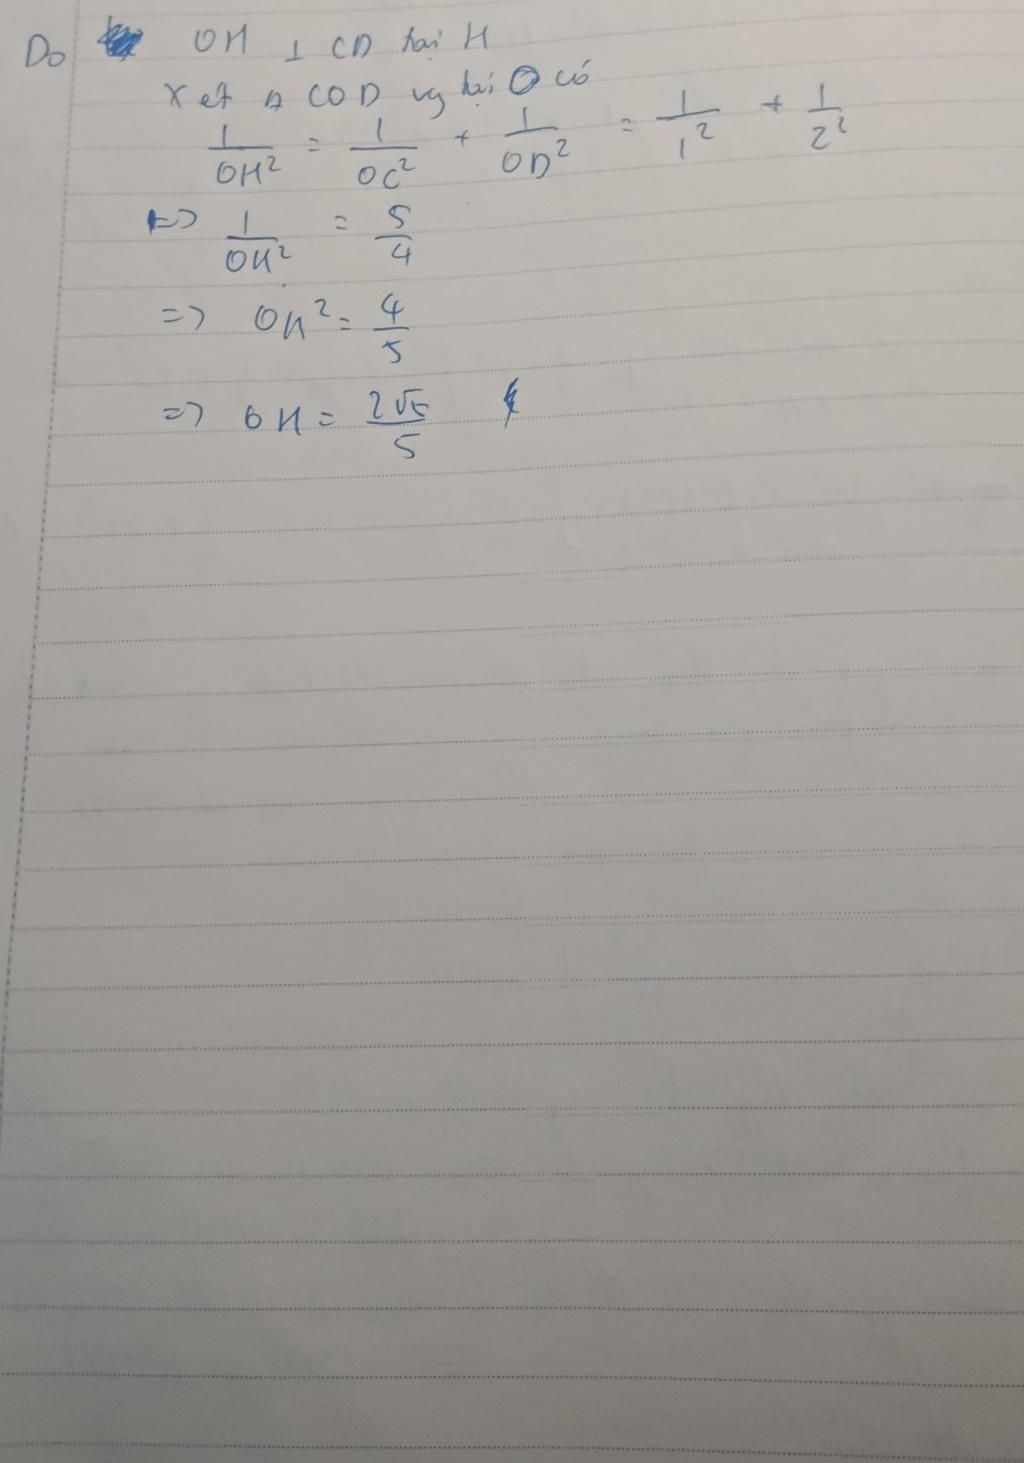 Do OH ⊥ CD tại H
Xét Δ COD vg tại O có
1/OH² = 1/OC² + 1/OD² = 1/1² + 1/2²
=> 1/OH² = 5/4
=> OH² = 4/5
=> OH = 2√5/5